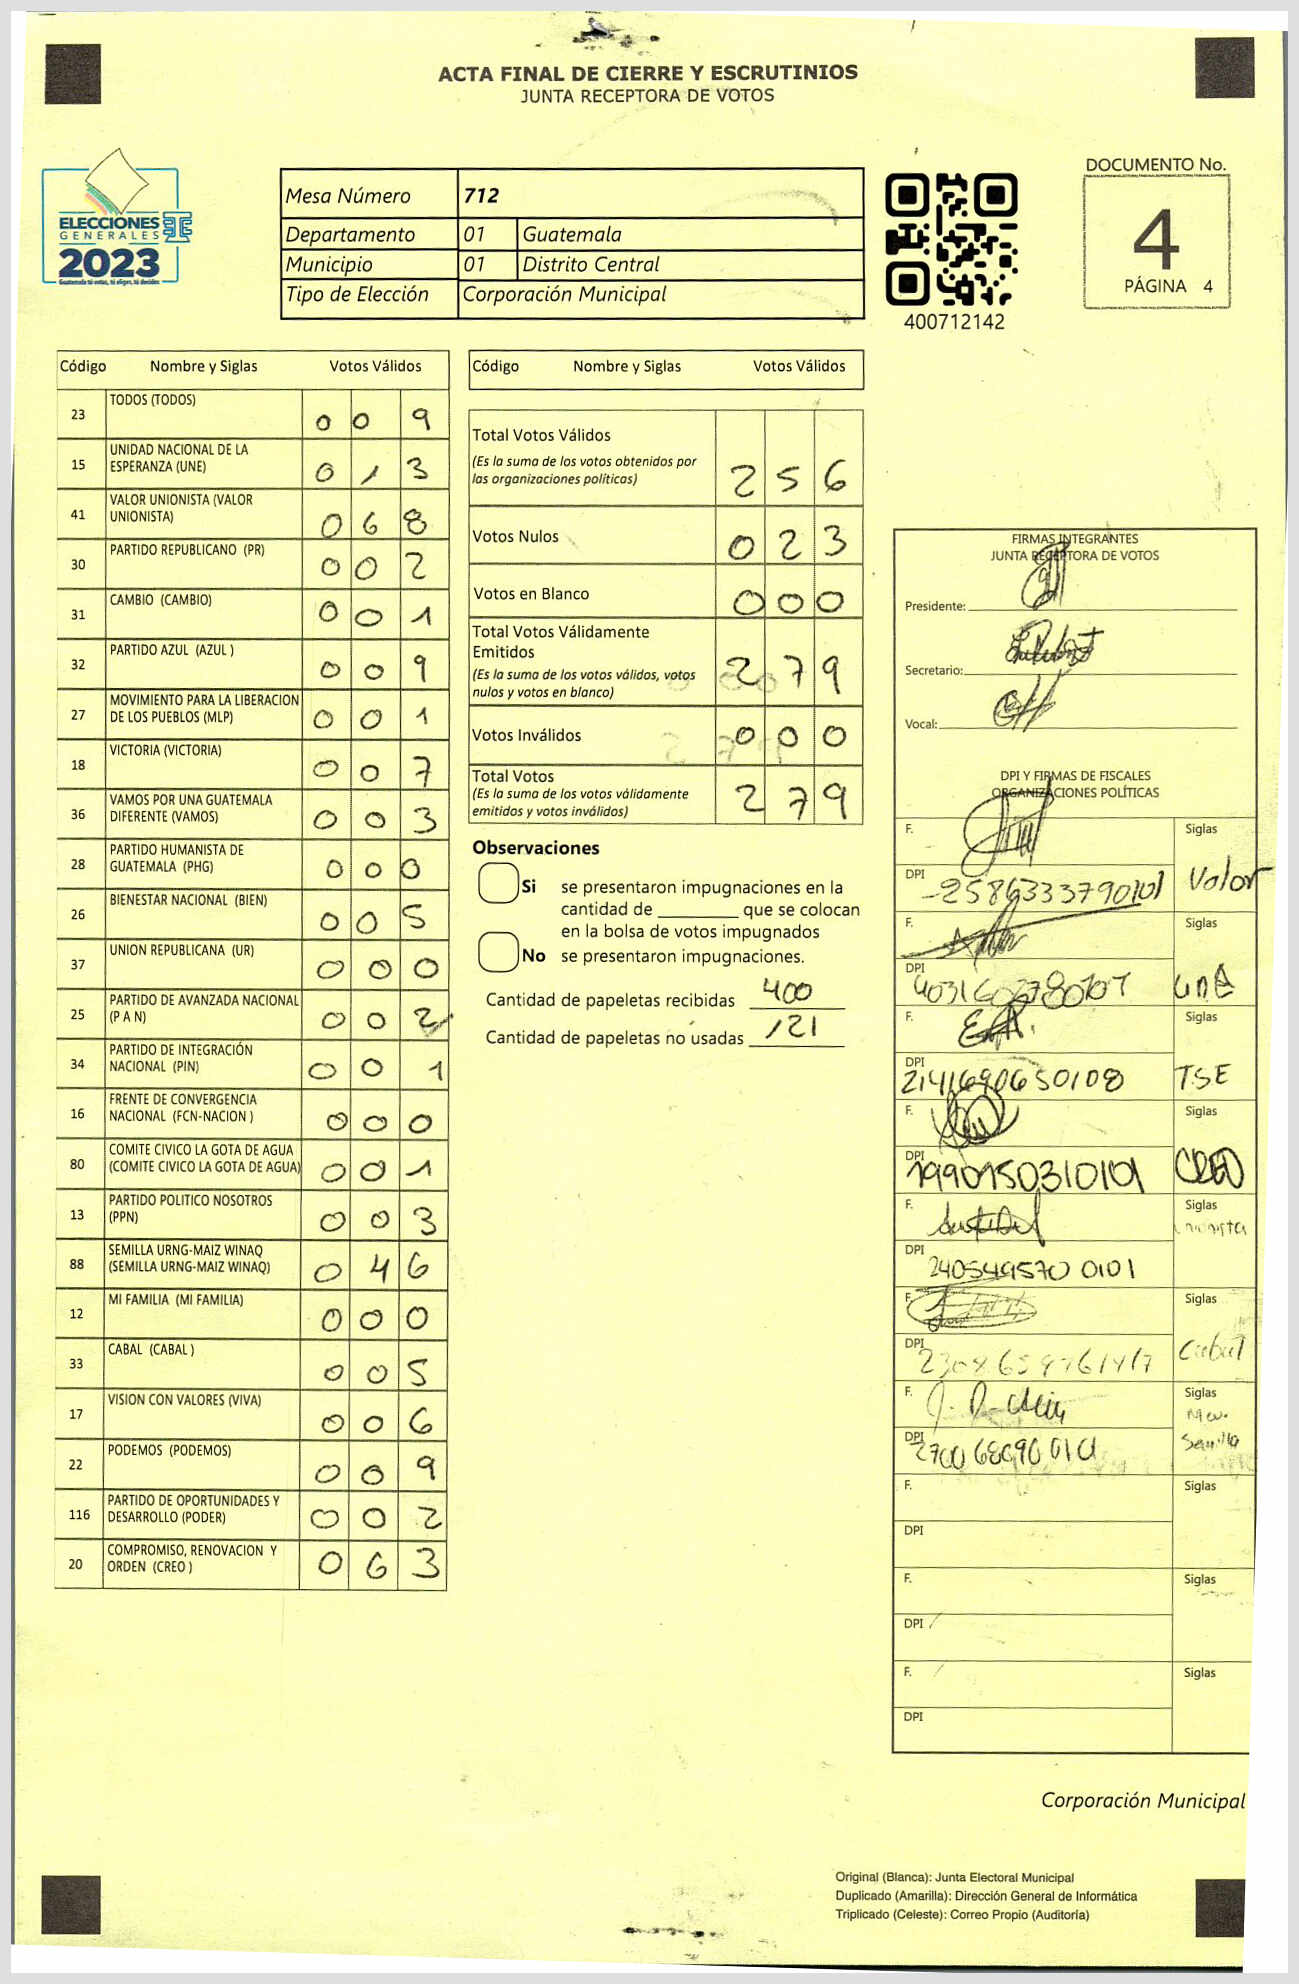 ACTA FINAL DE CIERRE Y ESCRUTINIOS
JUNTA RECEPTORA DE VOTOS
ELECCIONES
GENERALES
2023
Guatemala tú votas, tú eliges, tú decides
Mesa Número 712
Departamento 01 Guatemala
Municipio 01 Distrito Central
Tipo de Elección Corporación Municipal
400712142
DOCUMENTO No.
4
PÁGINA 4
Código Nombre y Siglas Votos Válidos
23 TODOS (TODOS) 0 0 9
15 UNIDAD NACIONAL DE LA
ESPERANZA (UNE) 0 1 3
41 VALOR UNIONISTA (VALOR
UNIONISTA) 0 6 8
30 PARTIDO REPUBLICANO (PR) 0 0 2
31 CAMBIO (CAMBIO) 0 0 1
32 PARTIDO AZUL (AZUL ) 0 0 9
27 MOVIMIENTO PARA LA LIBERACION
DE LOS PUEBLOS (MLP) 0 0 1
18 VICTORIA (VICTORIA) 0 0 7
36 VAMOS POR UNA GUATEMALA
DIFERENTE (VAMOS) 0 0 3
28 PARTIDO HUMANISTA DE
GUATEMALA (PHG) 0 0 0
26 BIENESTAR NACIONAL (BIEN) 0 0 5
37 UNION REPUBLICANA (UR) 0 0 0
25 PARTIDO DE AVANZADA NACIONAL
(P A N) 0 0 2
34 PARTIDO DE INTEGRACIÓN
NACIONAL (PIN) 0 0 1
16 FRENTE DE CONVERGENCIA
NACIONAL (FCN-NACION ) 0 0 0
80 COMITE CIVICO LA GOTA DE AGUA
(COMITE CIVICO LA GOTA DE AGUA) 0 0 1
13 PARTIDO POLITICO NOSOTROS
(PPN) 0 0 3
88 SEMILLA URNG-MAIZ WINAQ
(SEMILLA URNG-MAIZ WINAQ) 0 4 6
12 MI FAMILIA (MI FAMILIA) 0 0 0
33 CABAL (CABAL ) 0 0 5
17 VISION CON VALORES (VIVA) 0 0 6
22 PODEMOS (PODEMOS) 0 0 9
116 PARTIDO DE OPORTUNIDADES Y
DESARROLLO (PODER) 0 0 2
20 COMPROMISO, RENOVACION Y
ORDEN (CREO ) 0 6 3
Código Nombre y Siglas Votos Válidos
Total Votos Válidos
(Es la suma de los votos obtenidos por
las organizaciones políticas) 2 5 6
Votos Nulos 0 2 3
Votos en Blanco 0 0 0
Total Votos Válidamente
Emitidos
(Es la suma de los votos válidos, votos
nulos y votos en blanco) 2 7 9
Votos Inválidos 0 0 0
Total Votos
(Es la suma de los votos válidamente
emitidos y votos inválidos) 2 7 9
Observaciones
Si se presentaron impugnaciones en la
cantidad de ________ que se colocan
en la bolsa de votos impugnados
No se presentaron impugnaciones.
Cantidad de papeletas recibidas 400
Cantidad de papeletas no usadas 121
FIRMAS INTEGRANTES
JUNTA RECEPTORA DE VOTOS
Presidente:
Secretario:
Vocal:
DPI Y FIRMAS DE FISCALES
ORGANIZACIONES POLÍTICAS
F. Siglas
DPI 2586333790101 Valor
F. Siglas
DPI UNE
F. Siglas
DPI 2141690650108 TSE
F. Siglas
DPI 1990150310101 CREO
F. Siglas
Unionista
DPI 240549570 0101
F. Siglas
DPI Cabal
F. Siglas
Mov.
Semilla
DPI
F. Siglas
DPI
F. Siglas
DPI
F. Siglas
DPI
Corporación Municipal
Original (Blanca): Junta Electoral Municipal
Duplicado (Amarilla): Dirección General de Informática
Triplicado (Celeste): Correo Propio (Auditoría)